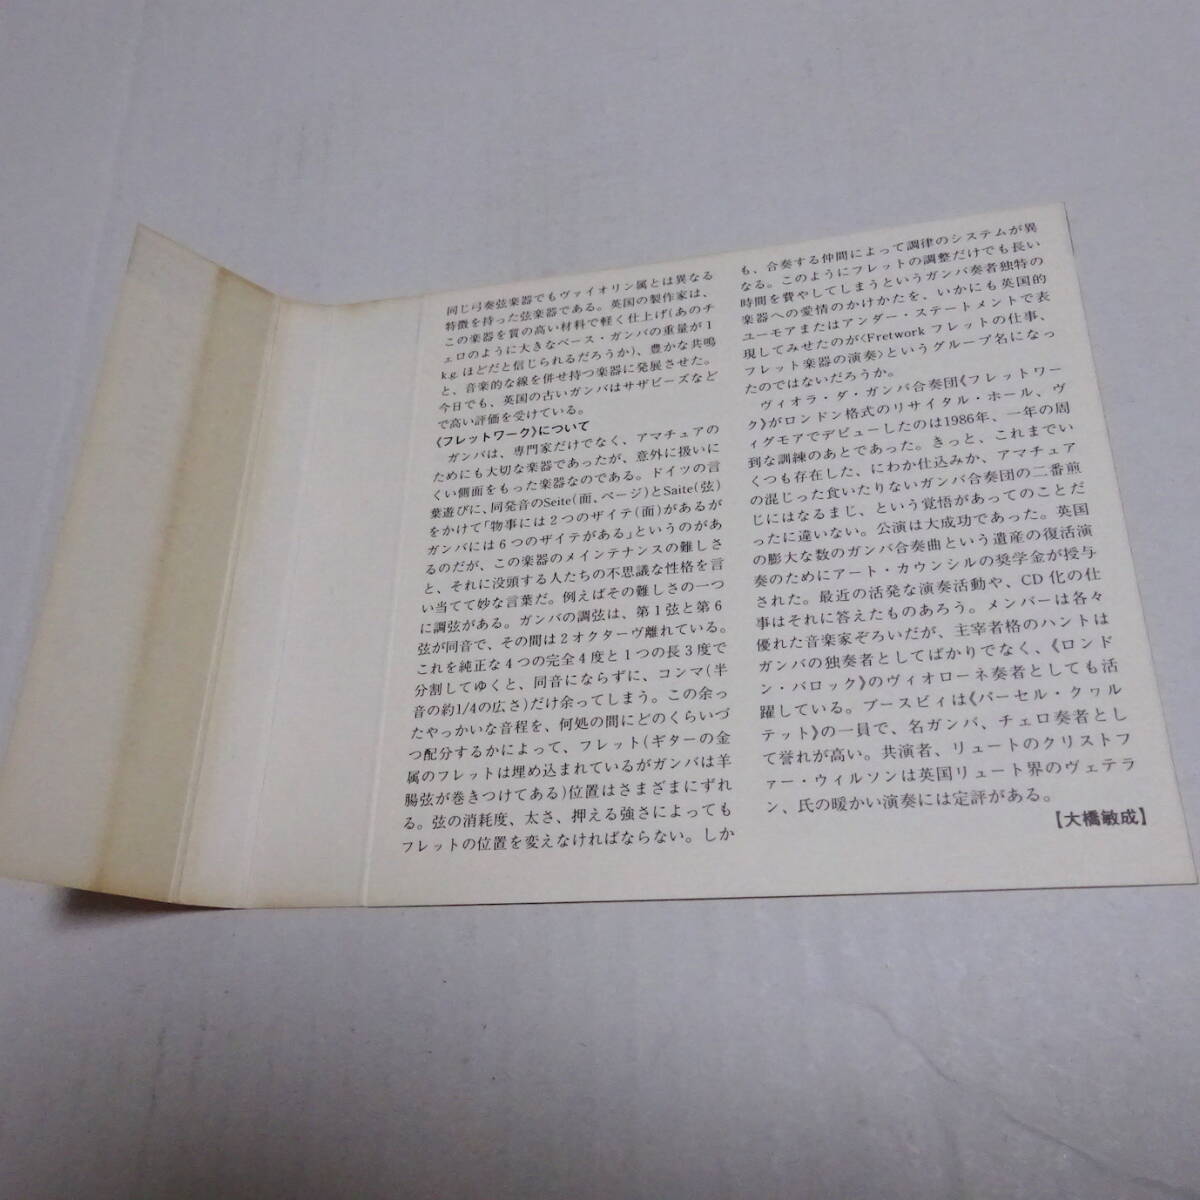 同じ弓奏弦楽器でもヴァイオリン属とは異なる
特徴を持った弦楽器である。英国の製作家は、
この楽器を質の高い材料で軽く仕上げ(あのチ
ェロのように大きなベース・ガンバの重量が1
kg. ほどだと信じられるだろうか)、豊かな共鳴
と、音楽的な線を併せ持つ楽器に発展させた。
今日でも、英国の古いガンバはサザビーズなど
で高い評価を受けている。
《フレットワーク》について
ガンバは、専門家だけでなく、アマチュアの
ためにも大切な楽器であったが、意外に扱いに
くい側面をもった楽器なのである。ドイツの言
葉遊びに、同発音のSeite(面、ページ)とSaite(弦)
をかけて「物事には2つのザイテ(面)があるが
ガンバには6つのザイテがある」というのがあ
るのだが、この楽器のメインテナンスの難しさ
と、それに没頭する人たちの不思議な性格を言
い当てて妙な言葉だ。例えばその難しさの一つ
に調弦がある。ガンバの調弦は、第1弦と第6
弦が同音で、その間は2オクターヴ離れている。
これを純正な4つの完全4度と1つの長3度で
分割してゆくと、同音にならずに、コンマ(半
音の約1/4の広さ)だけ余ってしまう。この余っ
たやっかいな音程を、何処の間にどのくらいづ
つ配分するかによって、フレット(ギターの金
属のフレットは埋め込まれているがガンバは羊
腸弦が巻きつけてある)位置はさまざまにずれ
る。弦の消耗度、太さ、押える強さによっても
フレットの位置を変えなければならない。しか
も、合奏する仲間によって調律のシステムが異
なる。このようにフレットの調整だけでも長い
時間を費やしてしまうというガンバ奏者独特の
楽器への愛情のかけかたを、いかにも英国的
ユーモアまたはアンダー・ステートメントで表
現してみせたのが〈Fretwork フレットの仕事、
フレット楽器の演奏〉というグループ名になっ
たのではないだろうか。
ヴィオラ・ダ・ガンバ合奏団《フレットワー
ク》がロンドン格式のリサイタル・ホール、ヴ
ィグモアでデビューしたのは1986年、一年の周
到な訓練のあとであった。きっと、これまでい
くつも存在した、にわか仕込みか、アマチュア
の混じった食いたりないガンバ合奏団の二番煎
じにはなるまじ、という覚悟があってのことだ
ったに違いない。公演は大成功であった。英国
の膨大な数のガンバ合奏曲という遺産の復活演
奏のためにアート・カウンシルの奨学金が授与
された。最近の活発な演奏活動や、CD 化の仕
事はそれに答えたものあろう。メンバーは各々
優れた音楽家ぞろいだが、主宰者格のハントは
ガンバの独奏者としてばかりでなく、《ロンド
ン・バロック》のヴィオローネ奏者としても活
躍している。ブースビィは《パーセル・クヮル
テット》の一員で、名ガンバ、チェロ奏者とし
て誉れが高い。共演者、リュートのクリストフ
ァー・ウィルソンは英国リュート界のヴェテラ
ン、氏の暖かい演奏には定評がある。
【大橋敏成】